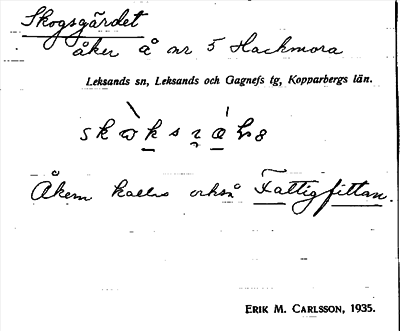 Skogsgärdet
åker å nr 5 Hackmora
Leksands sn, Leksands och Gagnefs tg, Kopparbergs län.
Åkern kallas också Fattigfittan.
ERIK M. CARLSSON, 1935.